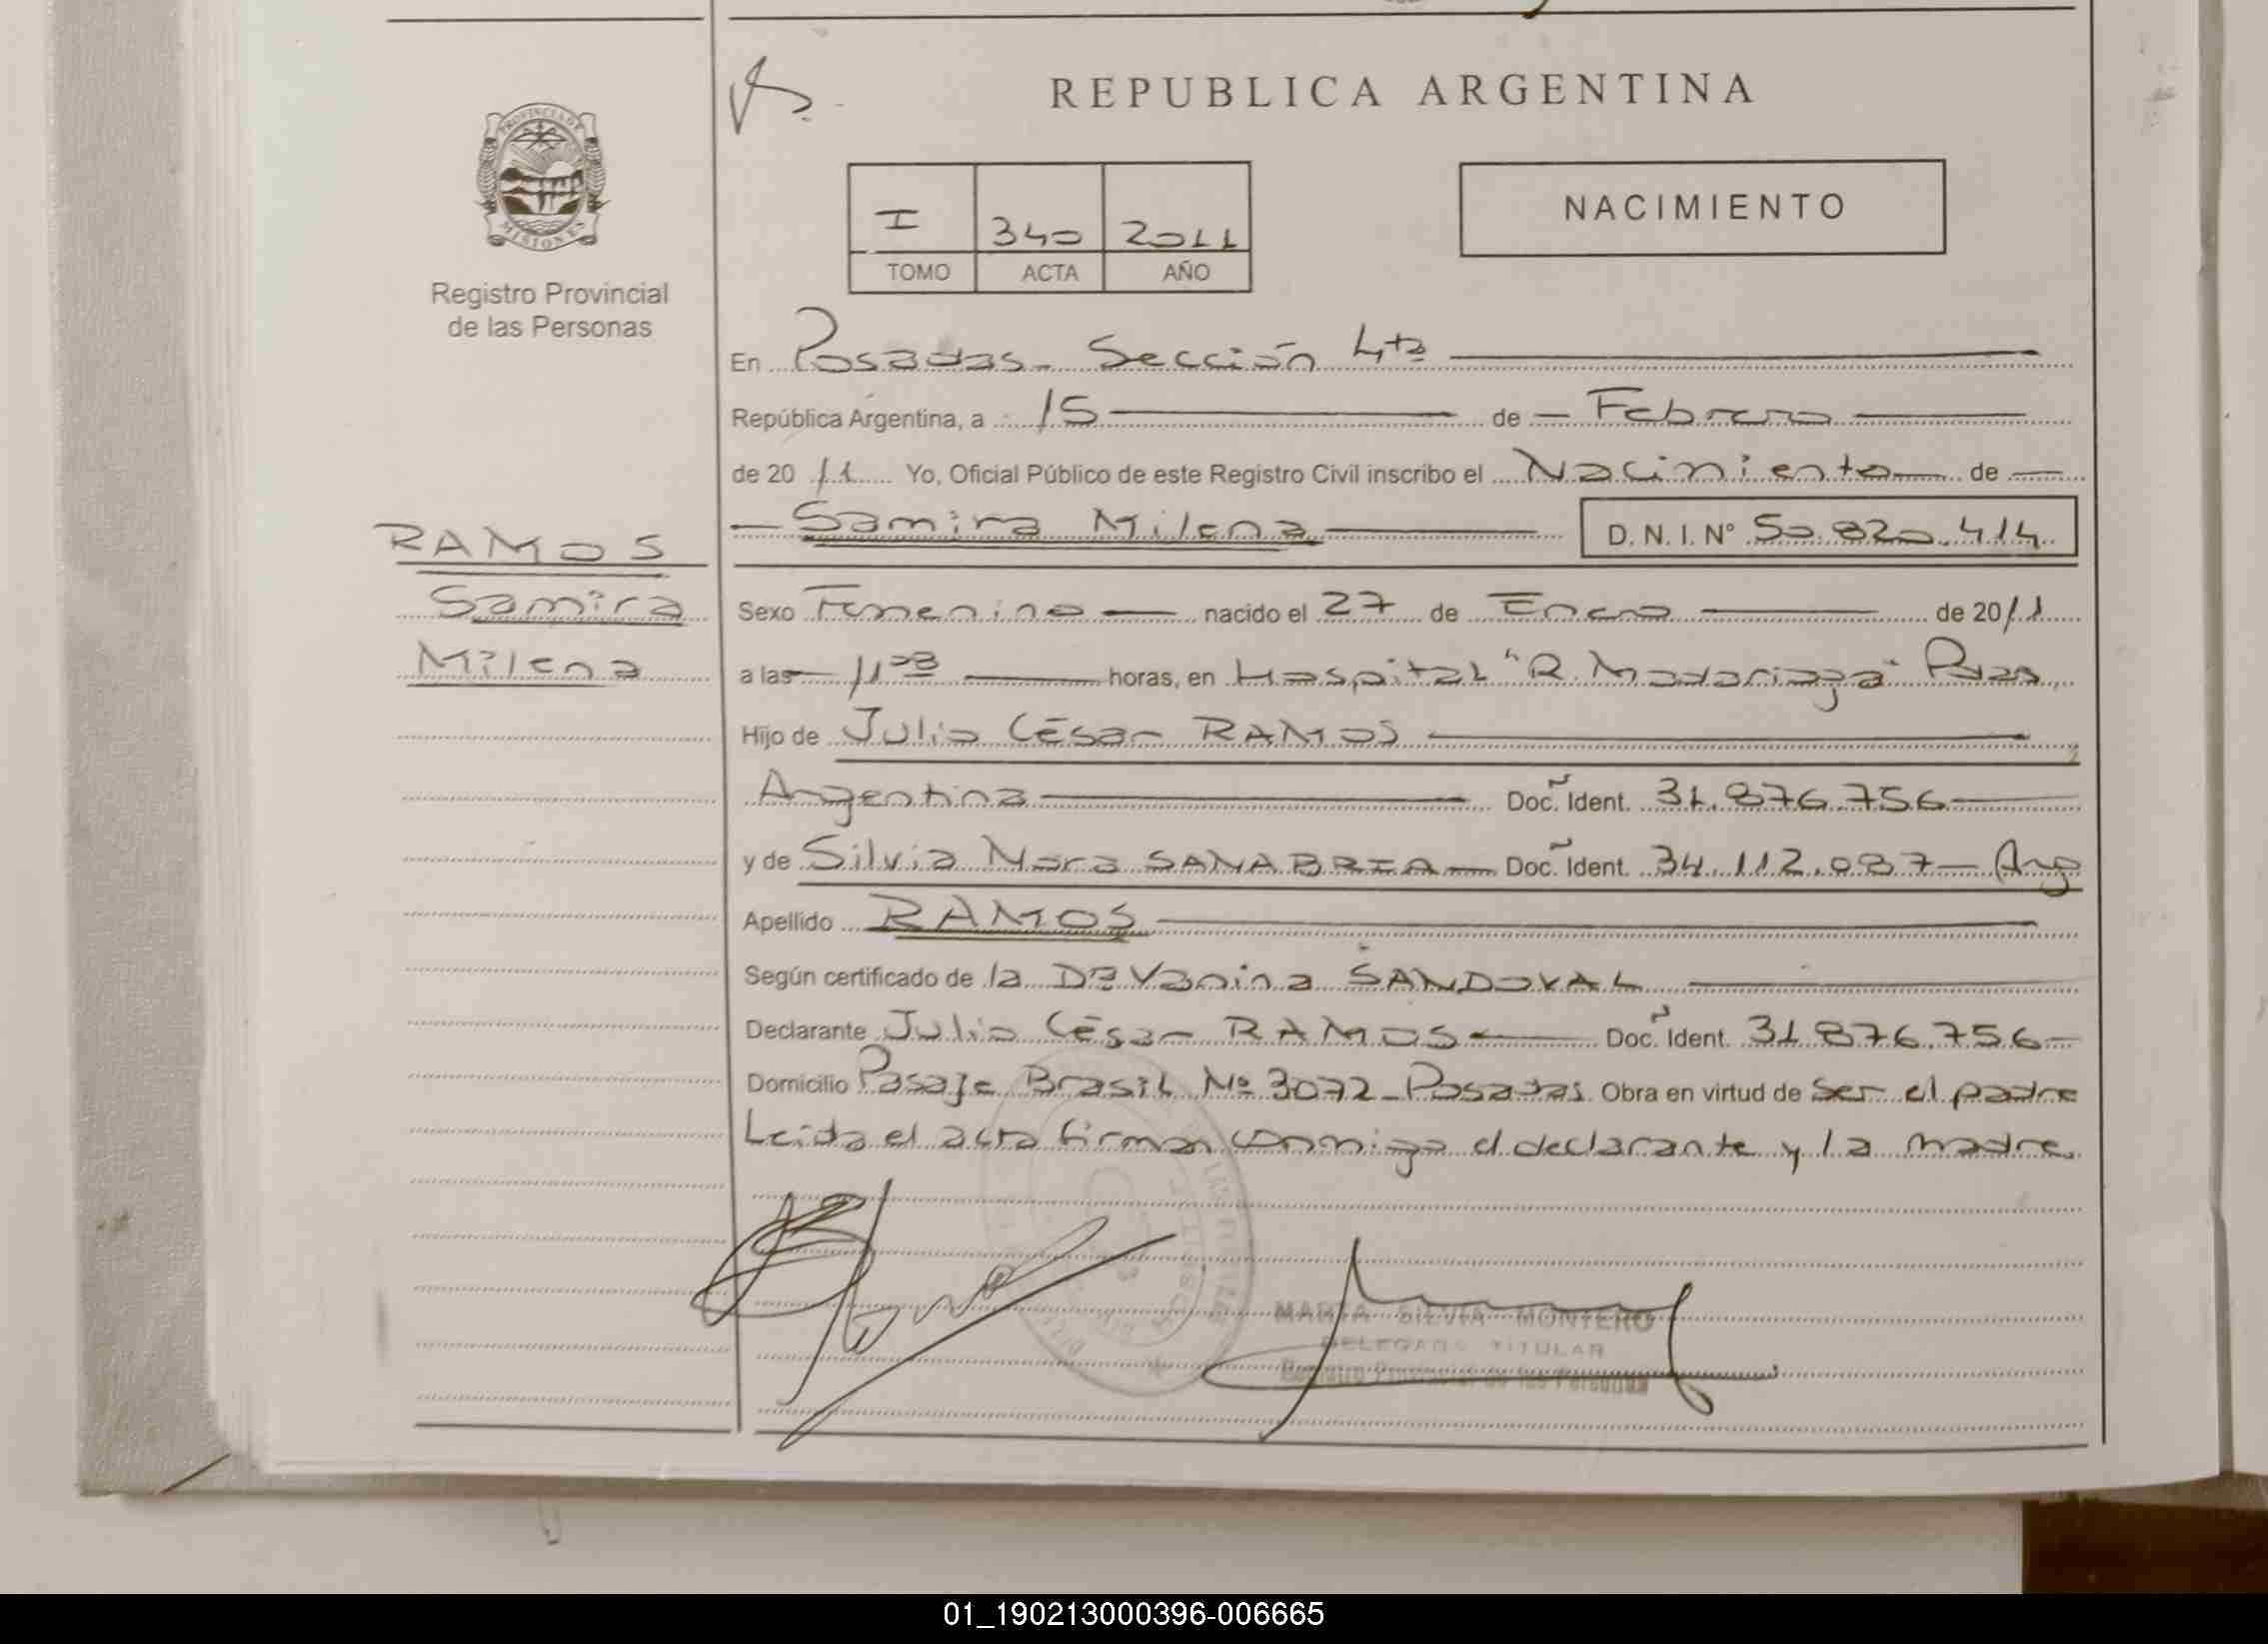 REPUBLICA ARGENTINA
PROVINCIA DE
MISIONES
Registro Provincial
de las Personas
I 340 2011
TOMO ACTA AÑO
NACIMIENTO
En Posadas - Sección 4ta
República Argentina, a 15 de Febrero
de 20 11 Yo, Oficial Público de este Registro Civil inscribo el Nacimiento de
Samira Milena D. N. I. N° 50.820.414
RAMOS
Samira
Milena
Sexo Femenino nacido el 27 de Enero de 2011
a las 11 horas, en Hospital "R. Madariaga"
Hijo de Julio César RAMOS
Argentina Doc. Ident. 31.876.756
y de Silvia Nora SANABRIA Doc. Ident. 34.112.087 - Arg
Apellido RAMOS
Según certificado de la Dra Vanina SANDOVAL
Declarante Julio César RAMOS Doc. Ident. 31.876.756
Domicilio Pasaje Brasil Nº 3072 - Posadas Obra en virtud de ser el padre
Leida el acta firman conmigo el declarante y la madre.
MARTA SILVIA MONTERO
DELEGADO TITULAR
Registro Provincial de las Personas
01_190213000396-006665